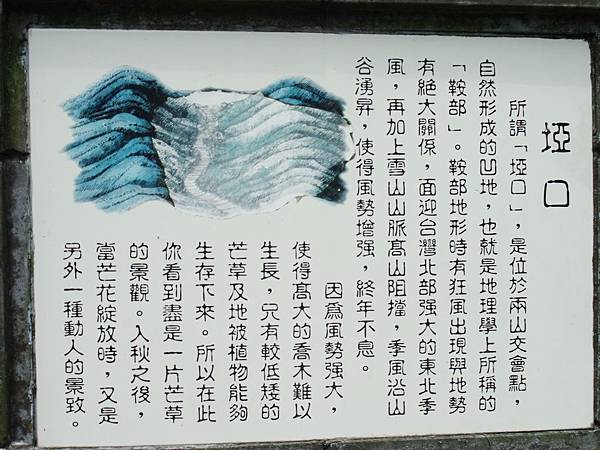 埡口
所謂「埡口」，是位於兩山交會點，
自然形成的凹地，也就是地理學上所稱的
「鞍部」。鞍部地形時有狂風出現與地勢
有絕大關係，面迎台灣北部強大的東北季
風，再加上雪山山脈高山阻擋，季風沿山
谷湧昇，使得風勢增強，終年不息。
因為風勢強大，
使得高大的喬木難以
生長，只有較低矮的
芒草及地被植物能夠
生存下來。所以在此
你看到盡是一片芒草
的景觀。入秋之後，
當芒花綻放時，又是
另外一種動人的景致。